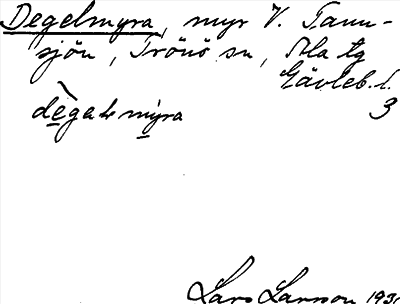 Degelmyra, myr V. Tann-
sjön, Trönö sn, Ala tg
Gävleb. l.
degalmyra 3
Lars Larsson 193